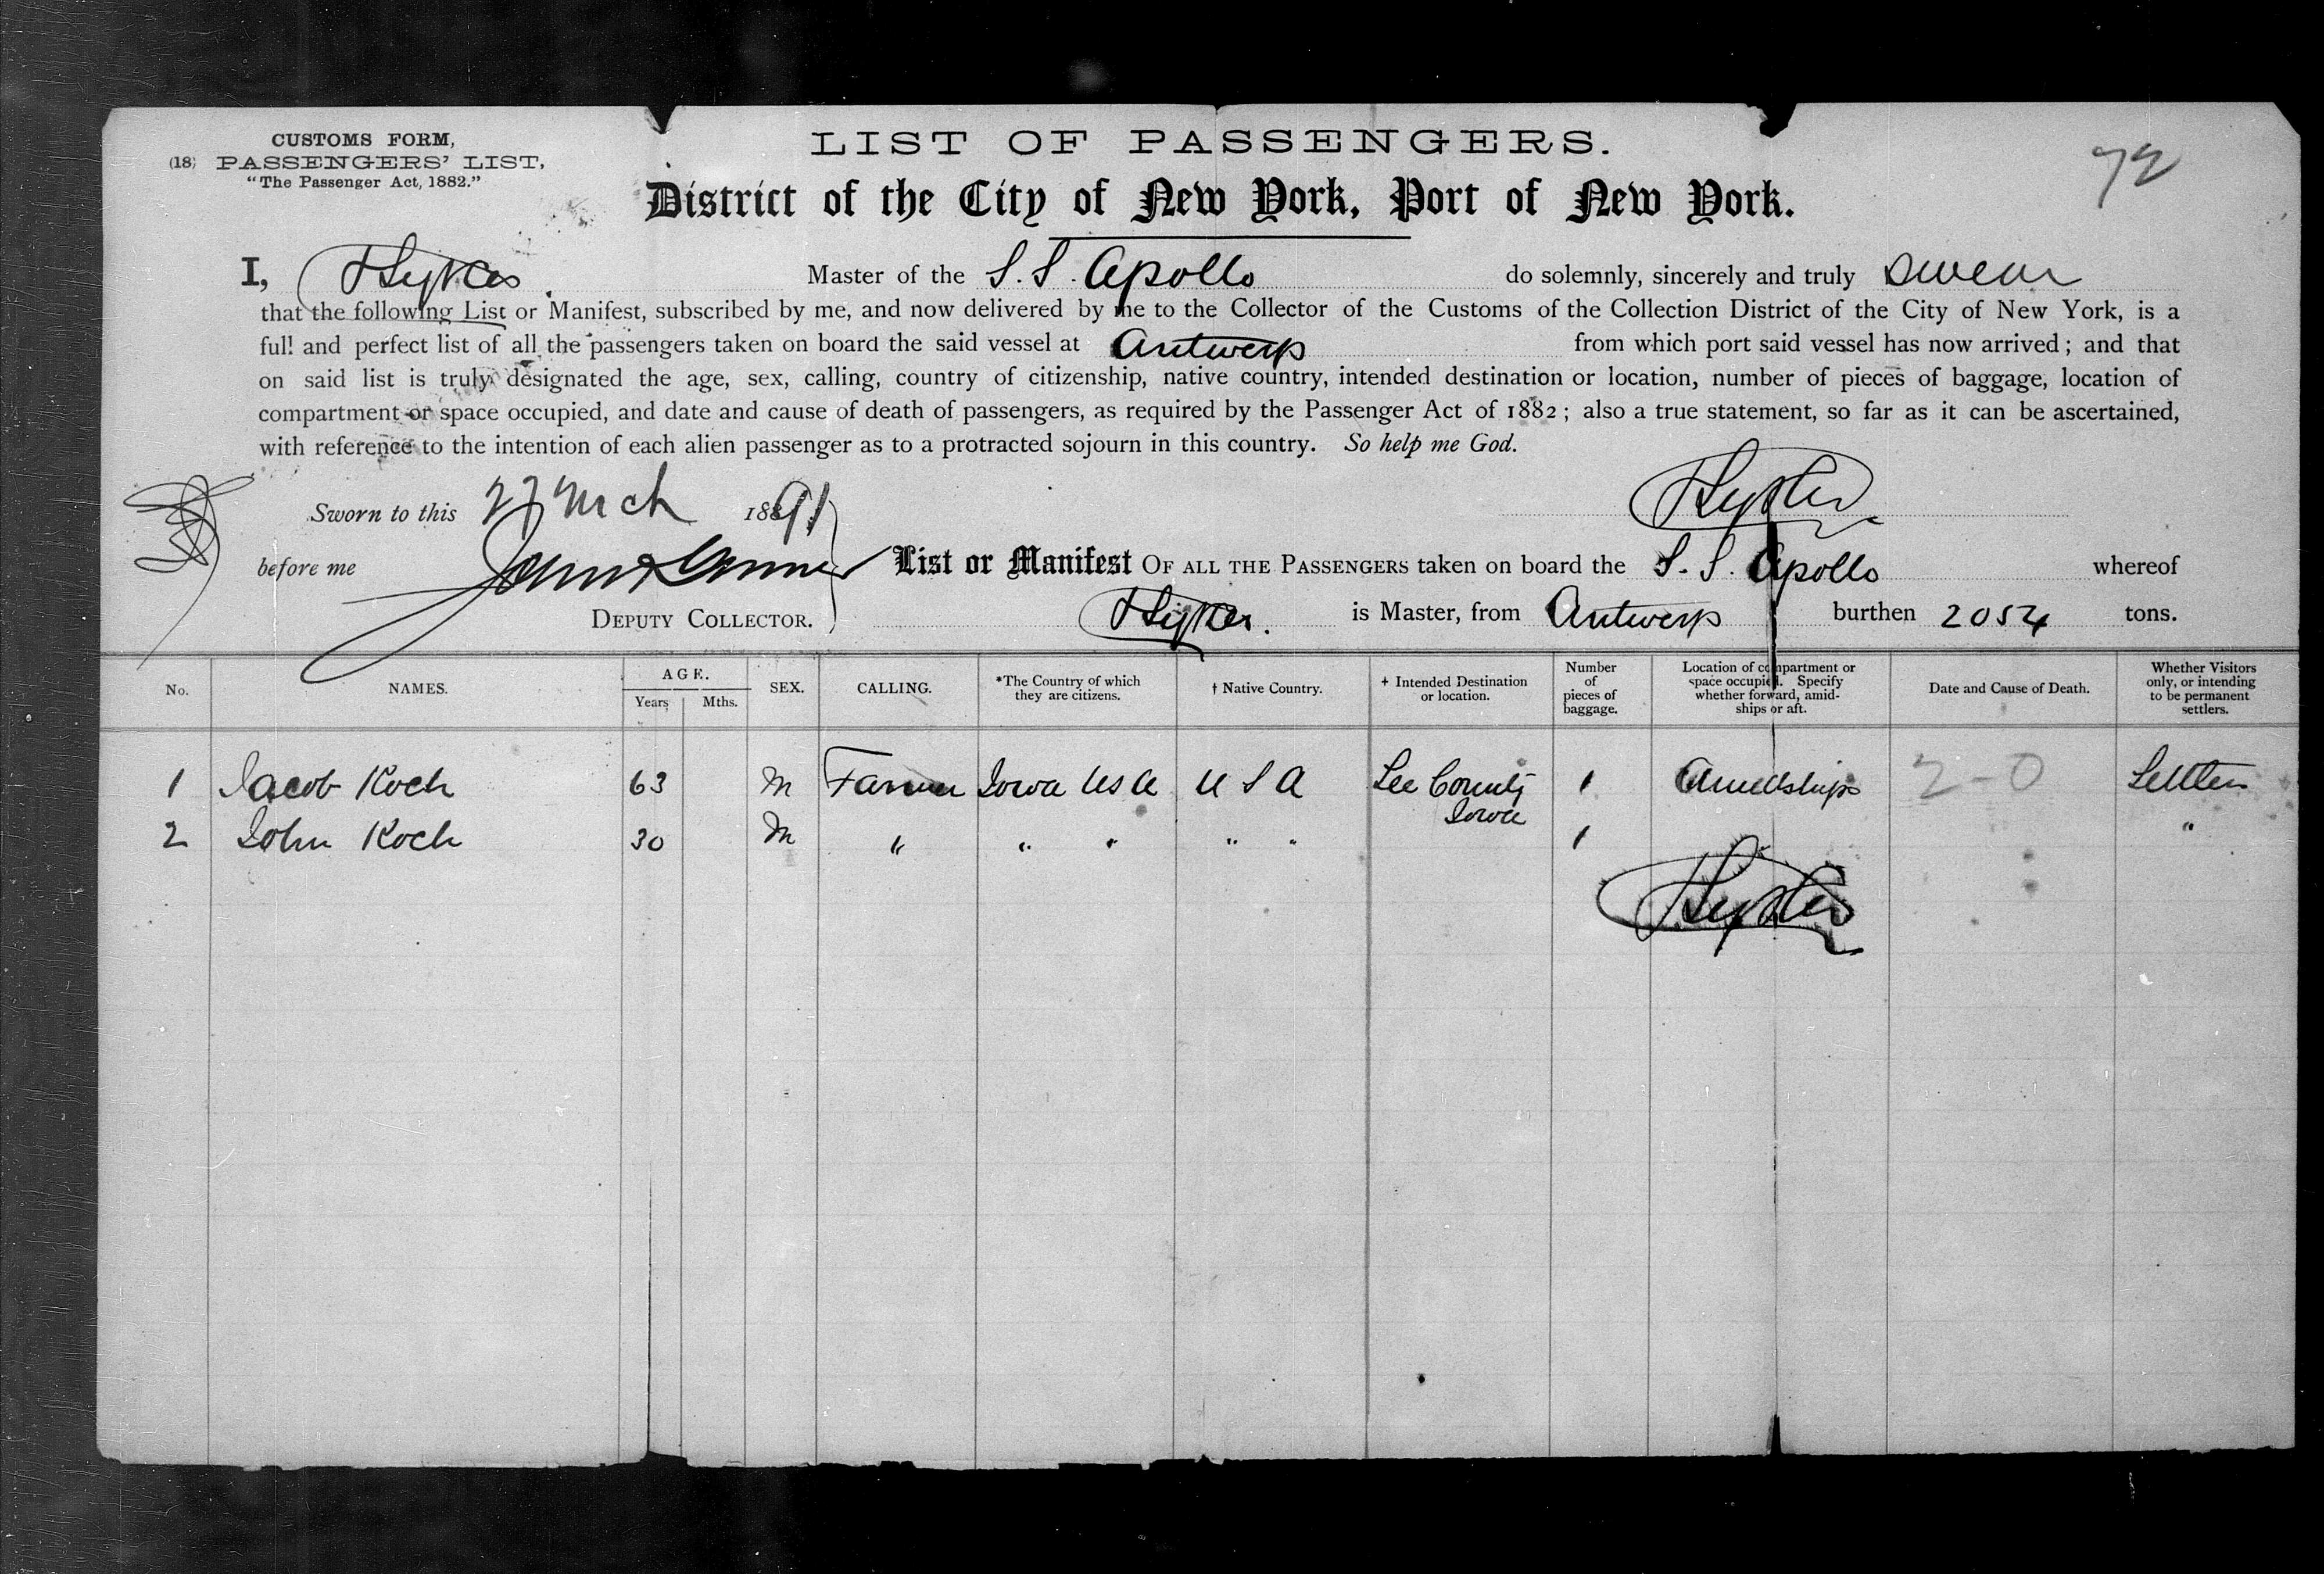 CUSTOMS FORM,
(18) PASSENGERS' LIST,
"The Passenger Act, 1882."
LIST OF PASSENGERS.
72
District of the City of New York, Port of New York.
I, Master of the S.S. Apollo do solemnly, sincerely and truly swear
that the following List or Manifest, subscribed by me, and now delivered by me to the Collector of the Customs of the Collection District of the City of New York, is a
full and perfect list of all the passengers taken on board the said vessel at Antwerp from which port said vessel has now arrived; and that
on said list is truly designated the age, sex, calling, country of citizenship, native country, intended destination or location, number of pieces of baggage, location of
compartment or space occupied, and date and cause of death of passengers, as required by the Passenger Act of 1882; also a true statement, so far as it can be ascertained,
with reference to the intention of each alien passenger as to a protracted sojourn in this country. So help me God.
Sworn to this 27 Mch 1891
before me
DEPUTY COLLECTOR.
List or Manifest OF ALL THE PASSENGERS taken on board the S.S. Apollo whereof
is Master, from Antwerp burthen 2054 tons.
No. NAMES. AGE. Years Mths. SEX. CALLING. *The Country of which they are citizens. † Native Country. + Intended Destination or location. Number of pieces of baggage. Location of compartment or space occupied. Specify whether forward, amidships or aft. Date and Cause of Death. Whether Visitors only, or intending to be permanent settlers.
1 Jacob Koch 63 M Farmer Iowa USA U S A Lee County Iowa 1 Amidships 2-0 Settler
2 John Koch 30 M " " " " " 1 "